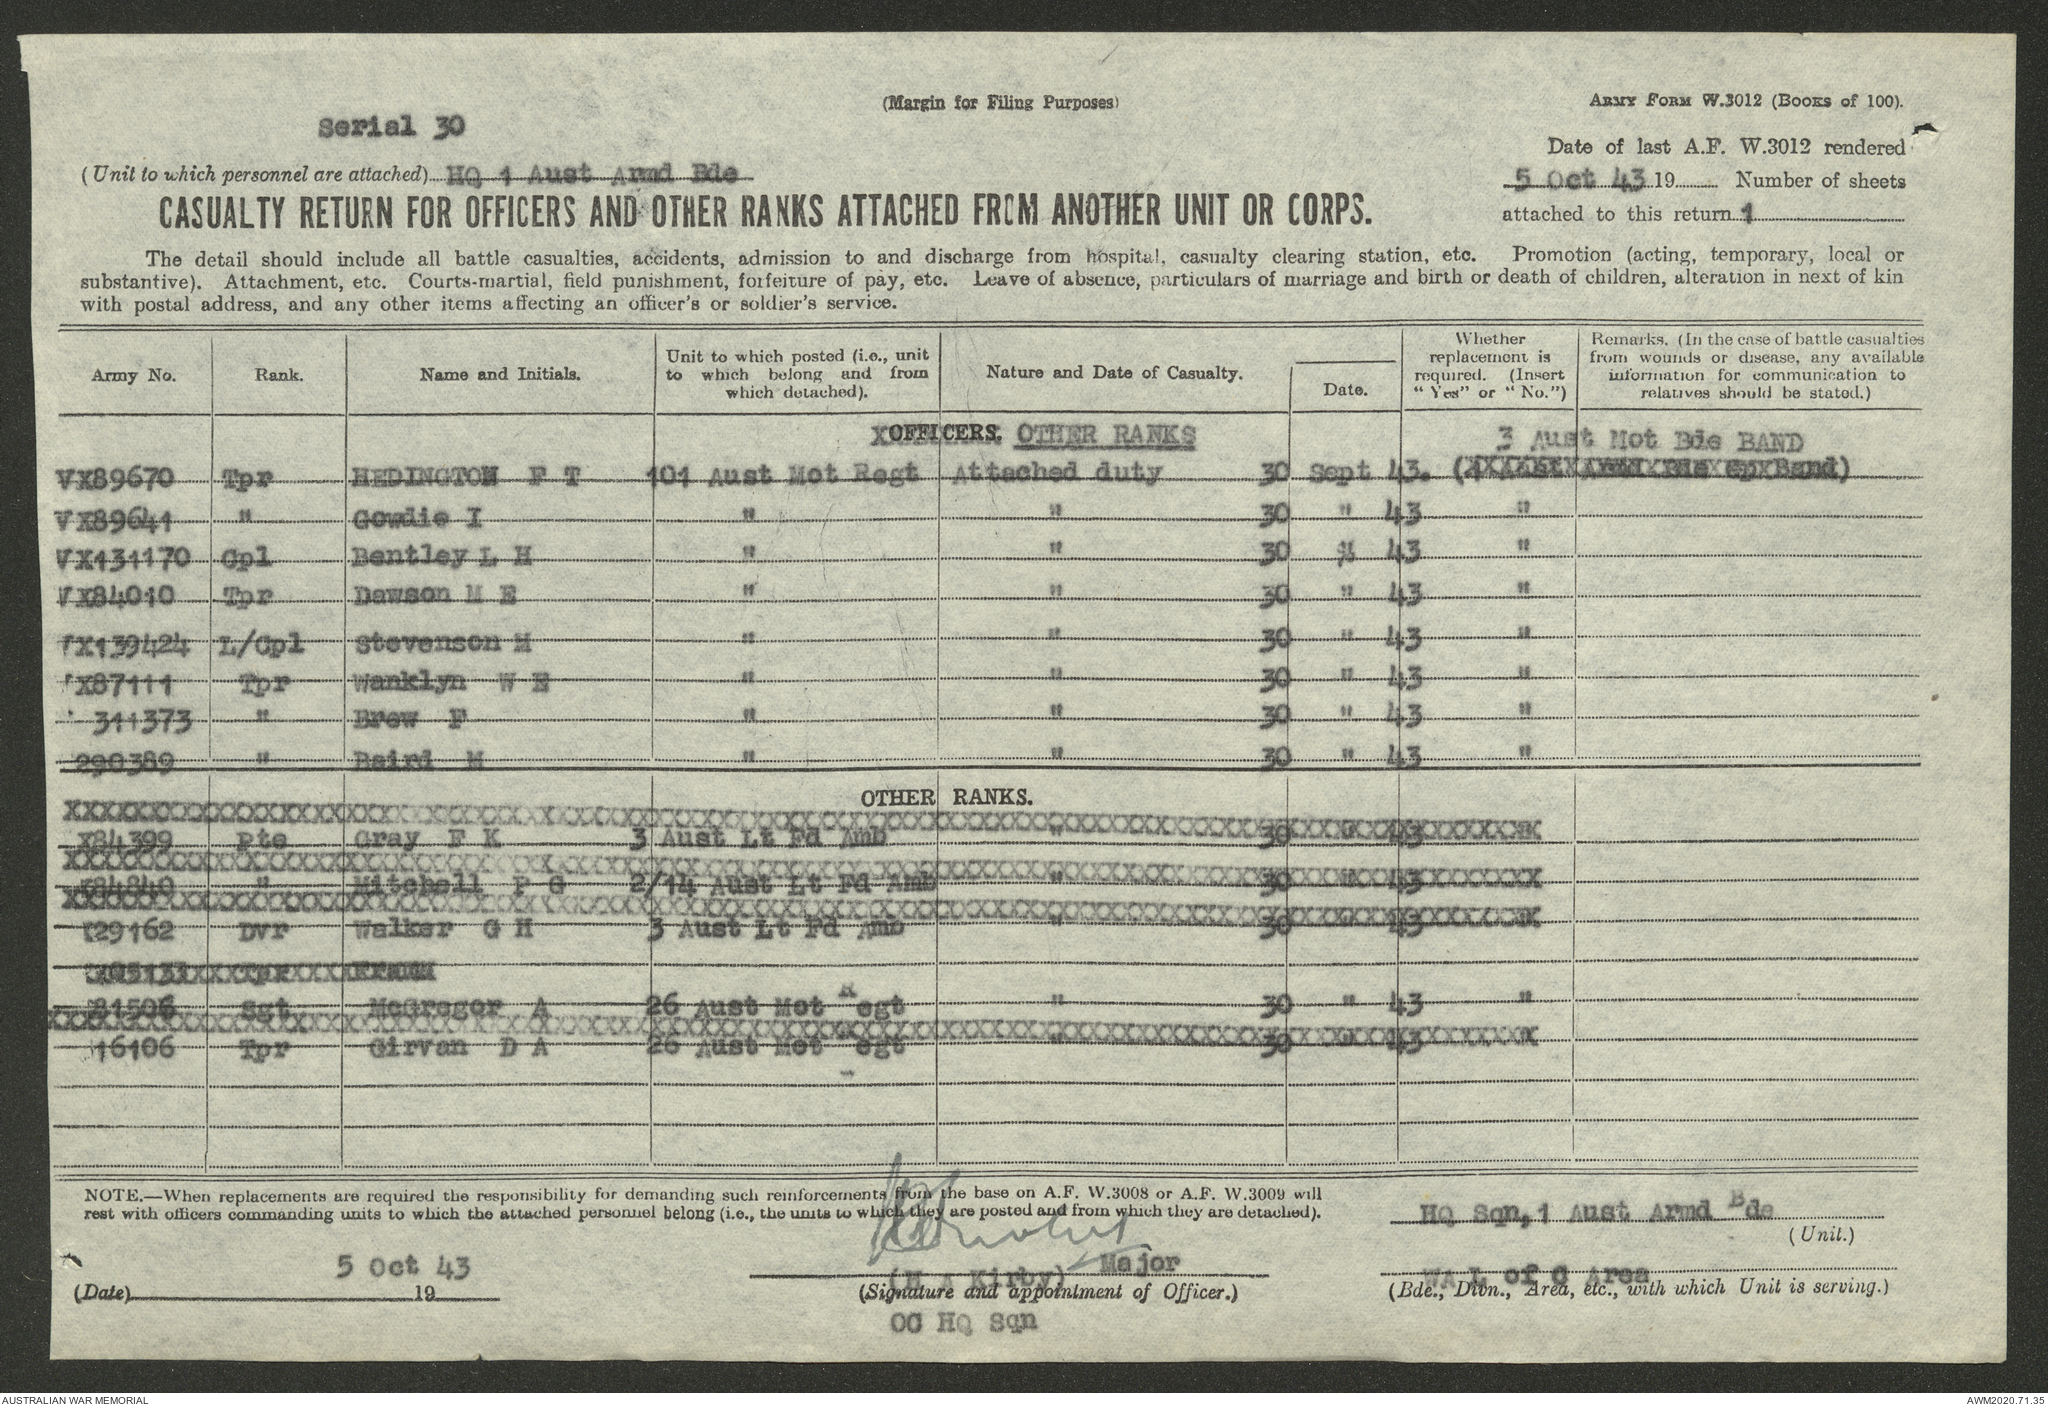 (Margin for Filing Purposes)
ARMY FORM W.3012 (BOOKS of 100).
Serial 30
Date of last A.F. W.3012 rendered
(Unit to which personnel are attached) HQ 1 Aust Armd Bde
5 Oct 43 19 Number of sheets
CASUALTY RETURN FOR OFFICERS AND OTHER RANKS ATTACHED FROM ANOTHER UNIT OR CORPS.
attached to this return 1
The detail should include all battle casualties, accidents, admission to and discharge from hospital, casualty clearing station, etc. Promotion (acting, temporary, local or
substantive). Attachment, etc. Courts-martial, field punishment, forfeiture of pay, etc. Leave of absence, particulars of marriage and birth or death of children, alteration in next of kin
with postal address, and any other items affecting an officer's or soldier's service.
Army No. Rank. Name and Initials. Unit to which posted (i.e., unit to which belong and from which detached). Nature and Date of Casualty. Date. Whether replacement is required. (Insert "Yes" or "No.") Remarks. (In the case of battle casualties from wounds or disease, any available information for communication to relatives should be stated.)
OFFICERS. OTHER RANKS 3 Aust Mot Bde BAND
VX89670 Tpr HEDINGTON F T 101 Aust Mot Regt Attached duty 30 Sept 43. (1 Aust Armd Bde Gp Band)
VX89641 " Gowdie I " " 30 " 43 "
VX131170 Cpl Bentley L H " " 30 " 43 "
VX84010 Tpr Dawson M E " " 30 " 43 "
VX139424 L/Cpl Stevenson M " " 30 " 43 "
X87111 Tpr Wanklyn W E " " 30 " 43 "
311373 " Brew F " " 30 " 43 "
290389 " Baird M " " 30 " 43 "
OTHER RANKS.
X84399 Pte Gray F K 3 Aust Lt Fd Amb " 30 " 43 "
84840 " Mitchell P G 2/14 Aust Lt Fd Amb " 30 " 43
29162 Dvr Walker G H 3 Aust Lt Fd Amb " 30 " 43 "
Tpr
81506 Sgt McGregor A 26 Aust Mot Regt " 30 " 43 "
16106 Tpr Girvan D A 26 Aust Mot Regt " 30 " 43 "
NOTE.—When replacements are required the responsibility for demanding such reinforcements from the base on A.F. W.3008 or A.F. W.3009 will
rest with officers commanding units to which the attached personnel belong (i.e., the units to which they are posted and from which they are detached).
HQ Sqn, 1 Aust Armd Bde
(Unit.)
5 Oct 43
(Date) 19
Major
(H A Kirby)
(Signature and appointment of Officer.)
OC HQ Sqn
WA L of C Area
(Bde., Divn., Area, etc., with which Unit is serving.)
AUSTRALIAN WAR MEMORIAL
AWM2020.71.35